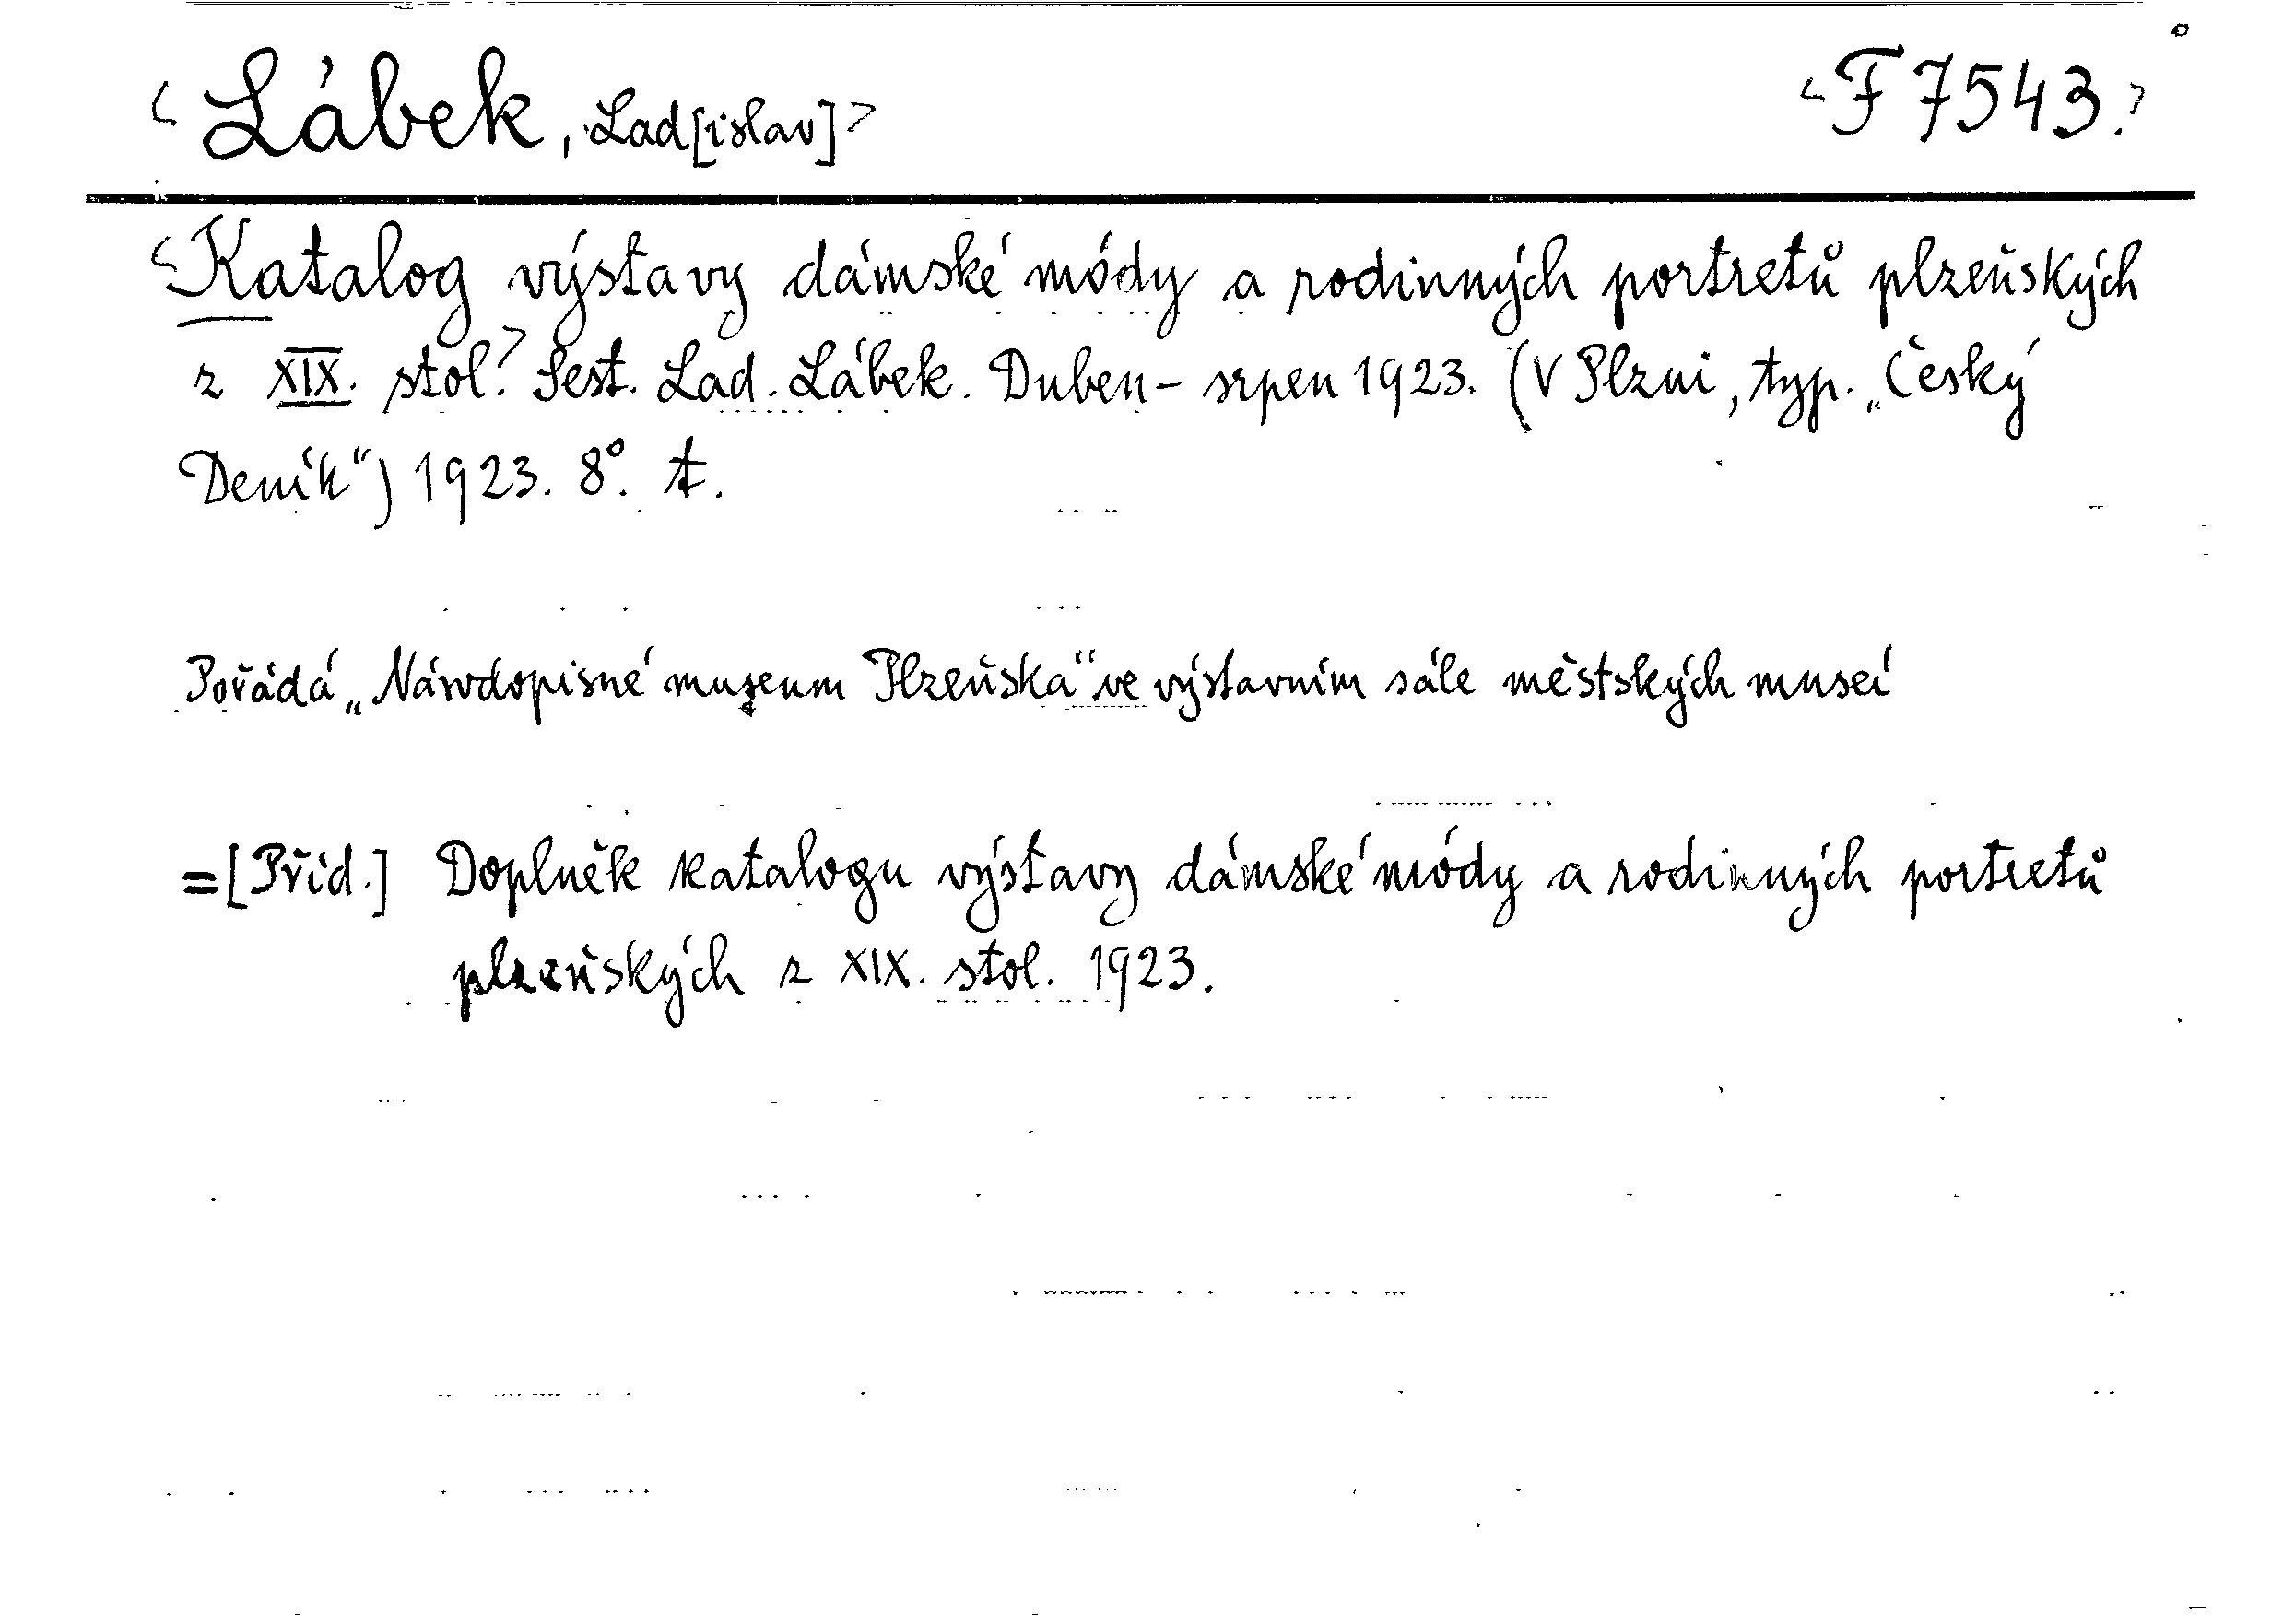 <Lábek, Lad[islav]> <F 7543.>
<Katalog výstavy dámské módy a rodinných portretů plzeňských
z XIX. stol.> Sest. Lad. Lábek. Duben - srpen 1923. (V Plzni, typ. „Český
Deník“) 1923. 8°. t.
Pořádá „Národopisné museum Plzeňska“ ve výstavním sále městských museí
=[Příd.] Doplněk katalogu výstavy dámské módy a rodinných portretů
plzeňských z XIX. stol. 1923.